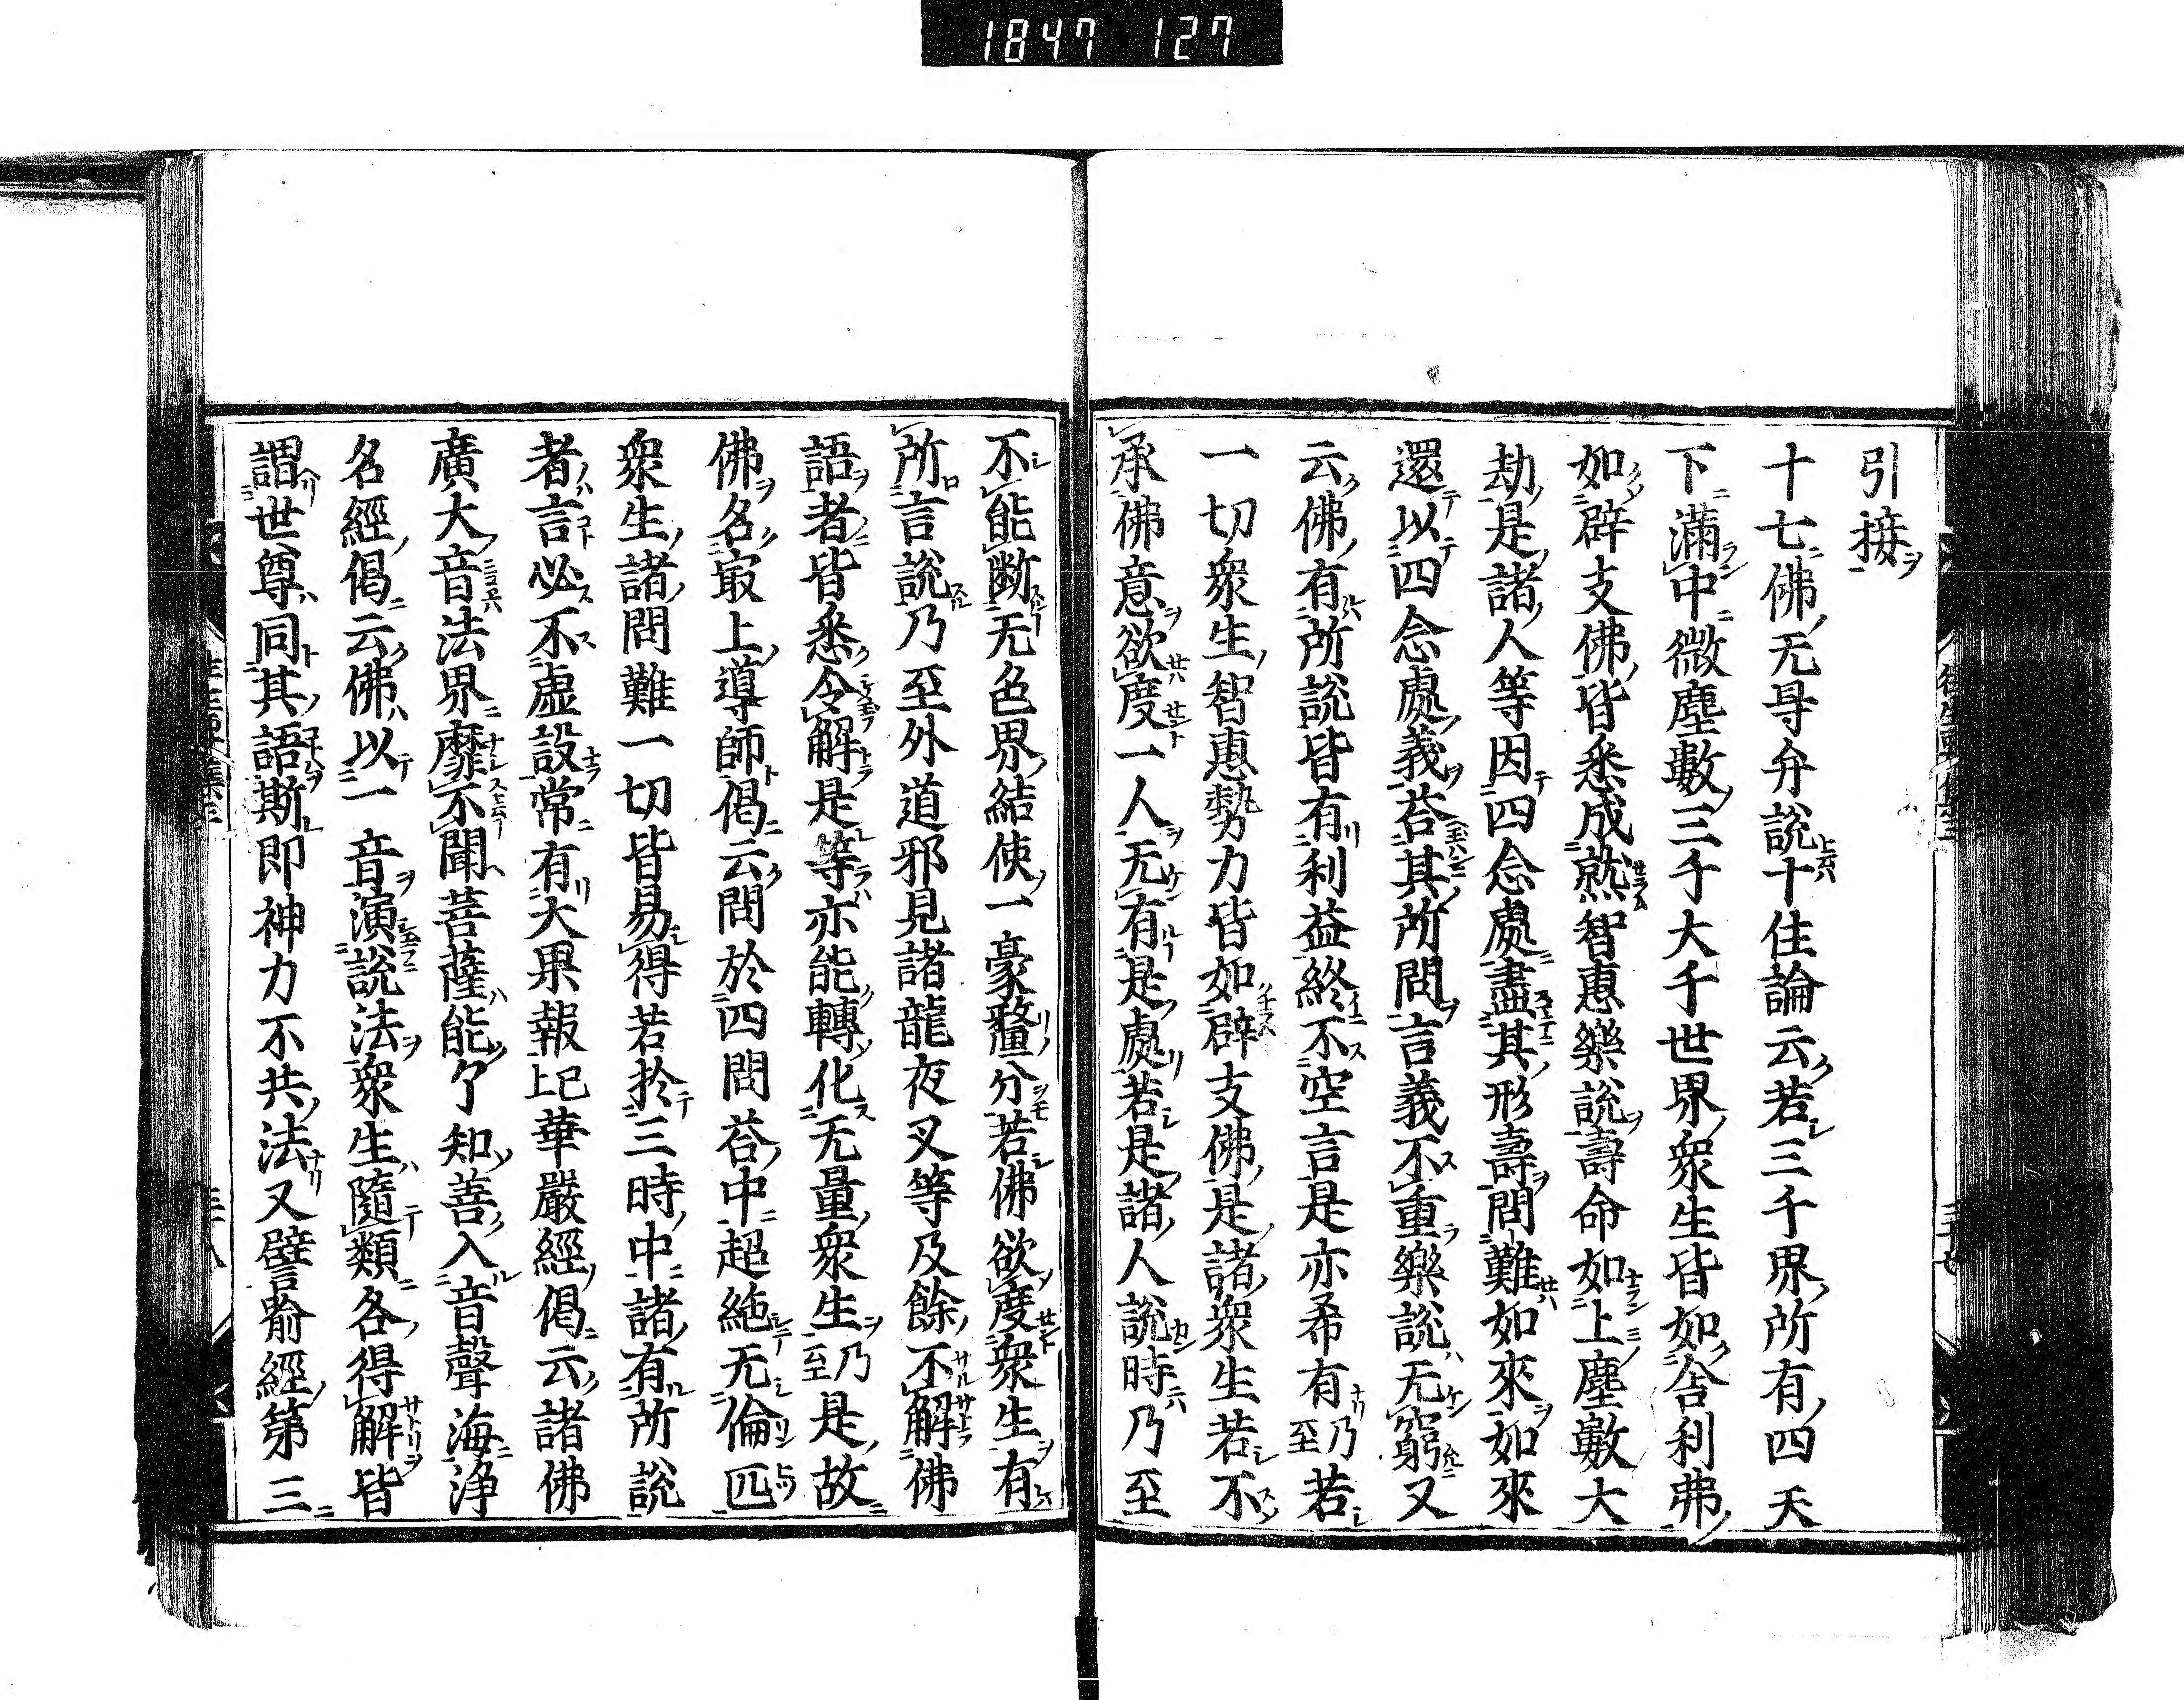 1847 127
引接
十七佛无㝵弁說十住論云若三千界所有四天
下滿中微塵數三千大千世界衆生皆如舍利弗
如辟支佛皆悉成就智惠樂說壽命如上塵數大
劫是諸人等因四念處盡其形壽問難如來如來
還以四念處義荅其所問言義不重樂說无窮又
云佛有所說皆有利益終不空言是亦希有乃至若
一切衆生智惠勢力皆如辟支佛是諸衆生若不
承佛意欲度一人无有是處若是諸人說時乃至
不能斷无色界結使一豪氂分若佛欲度衆生有
所言說乃至外道邪見諸龍夜叉等及餘不解佛
語者皆悉令解是等亦能轉化无量衆生乃至是故
佛名㝡上導師偈云問於四問荅中超絶无倫匹
衆生諸問難一切皆易得若於三時中諸有所說
者言必不虛設常有大果報已上華嚴經偈云諸佛
廣大音法界靡不聞菩薩能了知善入音聲海浄
名經偈云佛以一音演說法衆生隨類各得解皆
謂世尊同其語斯即神力不共法又譬喻經第三